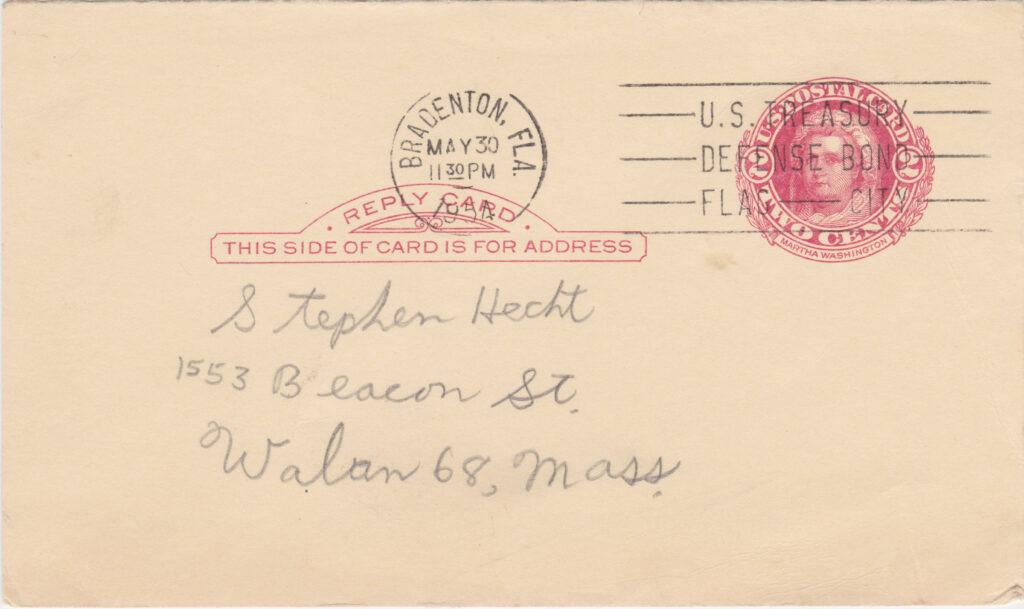 BRADENTON, FLA.
MAY 30
11 30 PM
1954
U.S. TREASURY
DEFENSE BOND
FLAG CITY
U.S. POSTAL CARD
2 2
TWO CENTS
MARTHA WASHINGTON
REPLY CARD
THIS SIDE OF CARD IS FOR ADDRESS
Stephen Hecht
1553 Beacon St.
Waban 68, Mass.